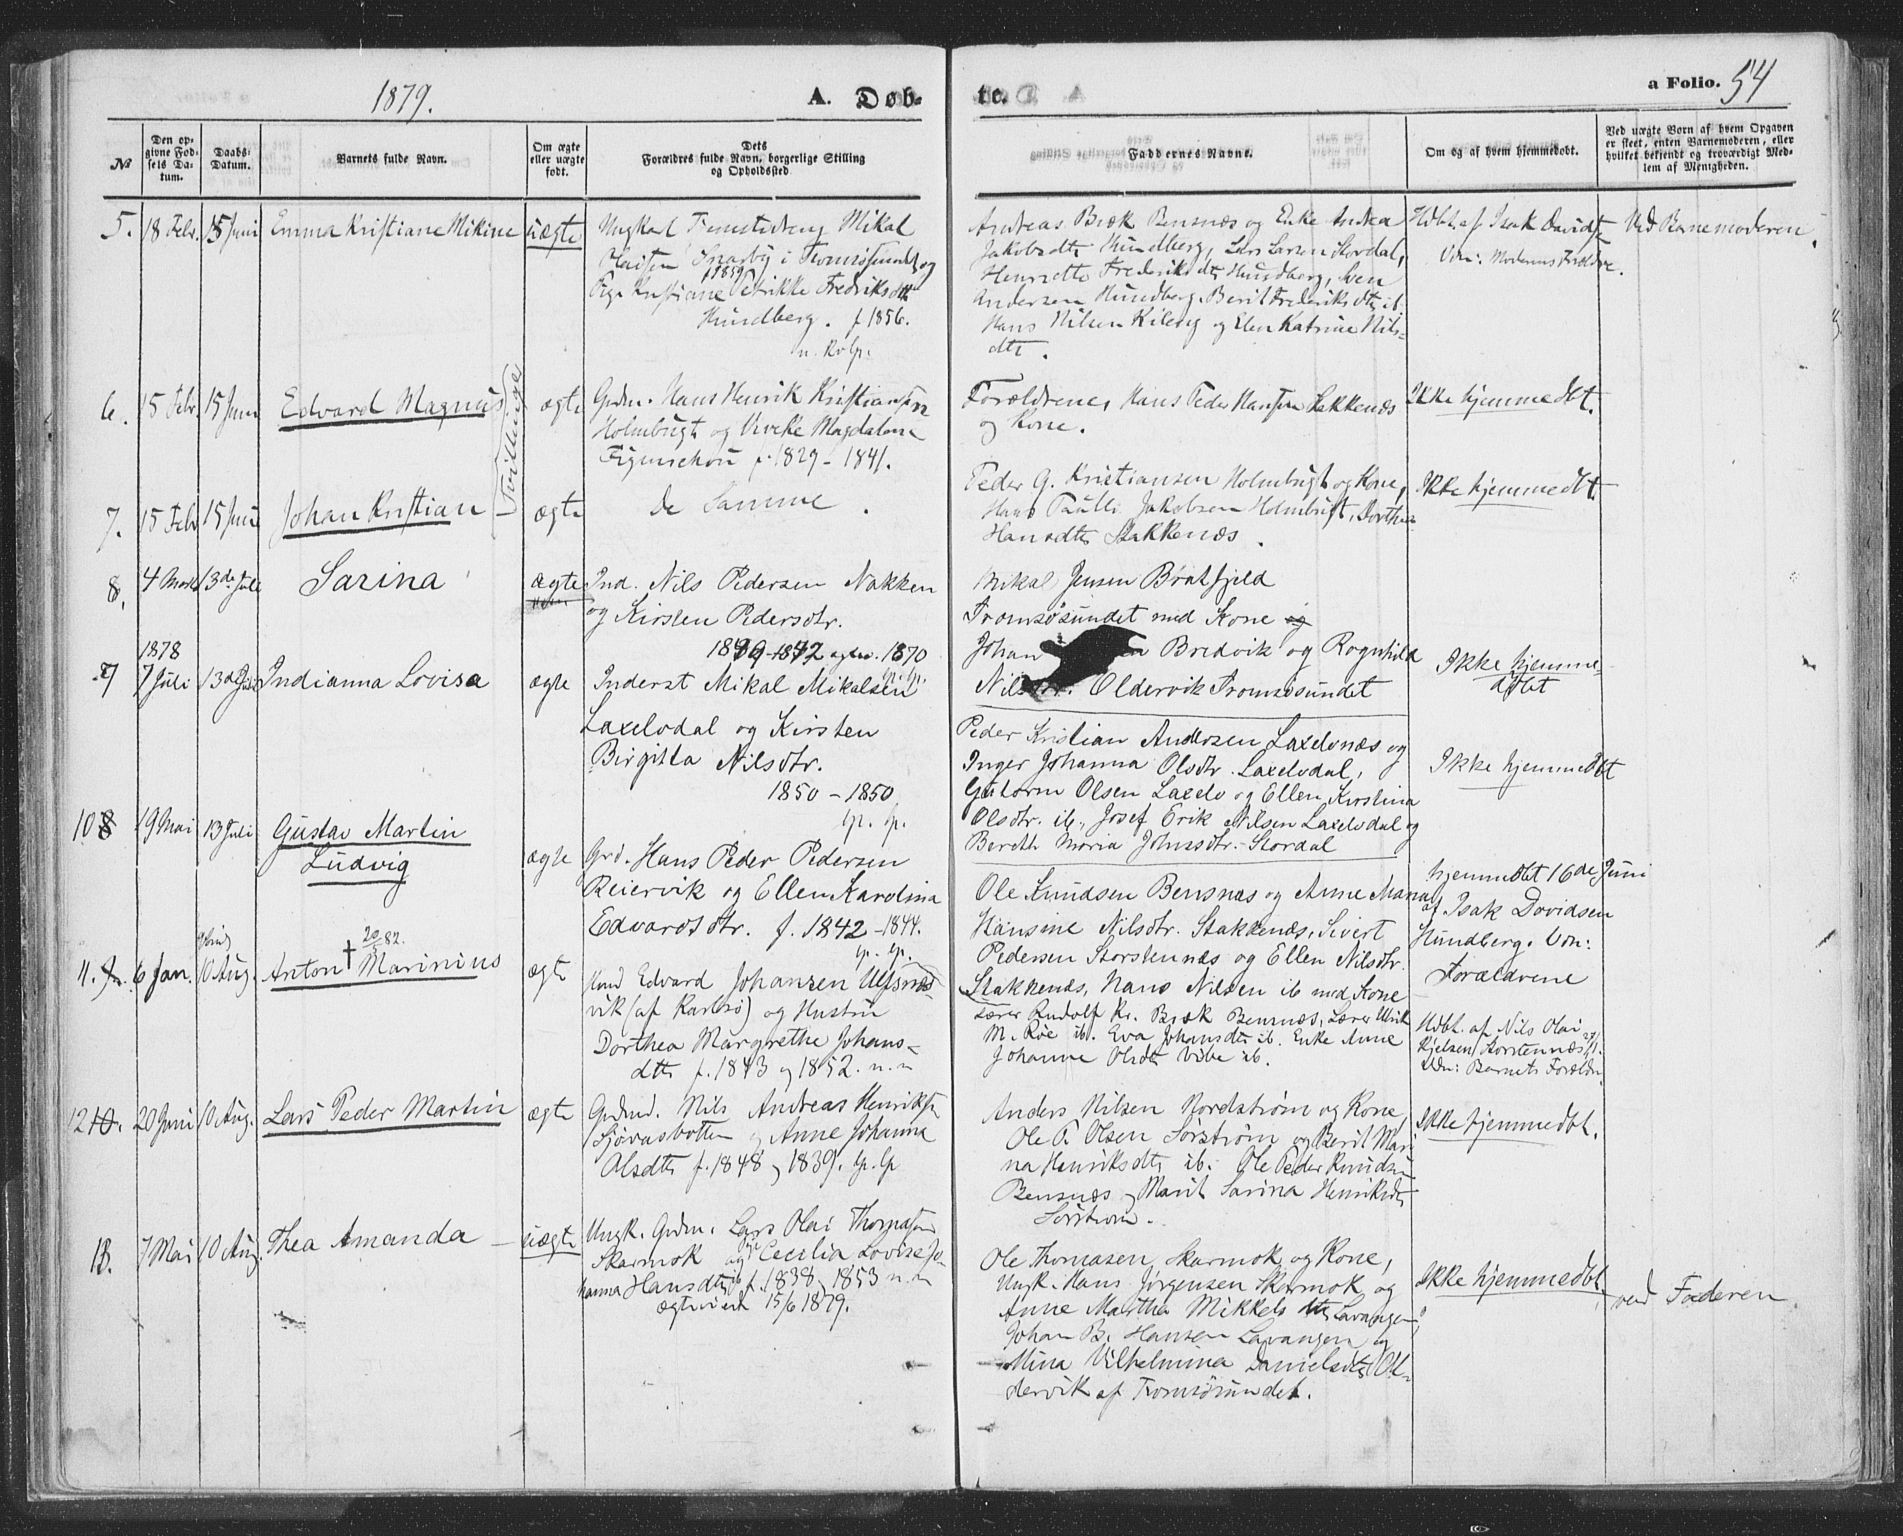 1879.
A. Døb-
te.
a Folio. 54
No
Den op-
givne Fød-
sels Da-
tum.
Daabs-
Datum.
Barnets fulde Navn.
Om ægte
eller uægte
født.
Dets
Forældres fulde Navn, borgerlige Stilling
og Opholdssted
Faddernes Navne.
Om og af hvem hjemmedøbt.
Ved uægte Børn af hvem Opgaven
er skeet, enten Barnemoderen, eller
hvilket bekjendt og troværdigt Med-
lem af Menigheden.
5. 18 Febr. 15 Juni Emma Kristiane Mikine uægte
Ungkarl Mikal
Olaisen Snarby i Tromsøsundet og
1859
Pige Kristiane Petrikke Fredriksdtr
Hundberg. f 1856.
Andreas Bræk Bensnæs og Enke Andrea
Jakobsdtr Hundberg, Lars Larsen Stordal,
Henriette Frederiksdtr Hundberg, Sven
Andersen Hundberg, Berit Frederiksdtr ib.
Hans Nilsen Kileng og Elen Katrine Nils-
dtr.
Hdbt. af Isak Davids.
Vdn: Moderens Forældre.
Ved Barnemoderen.
6. 15 Febr. 15 Juni Edvard Magnus ægte
Tvillinger
Grdm. Hans Henrik Kristiansen
Holmbugt og Vivike Magdalena
Figenschou f. 1829 - 1841.
Forældrene, Hans Peder Hansen Stakkenæs
og Kone.
Ikke hjemmedbt.
7. 15 Febr 15 Juni Johan Kristian ægte
de Samme.
Peder G. Kristiansen Holmbugt og Kone,
Hans Paulli Jakobsen Holmbugt, Dorthea
Hansdtr Stakkenæs.
Ikke hjemmedbt
8. 4 Marts 13de Juli Sarina ægte
Ind. Nils Pedersen Nakken
og Kirsten Pedersdtr.
Mikal Jensen Bratfjeld
Tromsøsundet med Kone og
Johan Bredvik og Ragnhild
Nilsdtr. Oldervik Tromsøsundet
Ikke hjemme-
døbt
1878
9 7 Juli 13de Juli Indianna Lovisa ægte
Inderst Mikal Mikalsen
Laxelvdal og Kirsten
Birgitta Nilsdtr.
1850 - 1850
lp. lp.
Peder Kristian Andersen Laxelvnæs og
Inger Johanna Olsdtr. Laxelvdal,
Guttorm Olsen Laxelv og Ellen Kirstina
Olsdtr. ib., Josef Erik Nilsen Laxelvdal og
Bereth Maria Johnsdtr. Stordal
Ikke hjemmedbt
10 8 19 Mai 13 Juli Gustav Martin
Ludvig
ægte
Grd. Hans Peder Pedersen
Reiervik og Ellen Karolina
Edvardsdtr. f. 1842 - 1844.
lp. lp.
Ole Knudsen Bensnæs og Anne Maria
Hansine Nilsdtr. Stakkenæs, Sivert
Pedersen Storstennæs og Ellen Nilsdtr.
Stakkenæs, Hans Nilsen ib med Kone
hjemmedbt 16de Juni
af Isak Davidsen
Hundberg. Vdn:
Forældrene
11. 6 Jan. 10 Aug. Anton † Marinius ægte
20/82.
Edvard Johansen Ulfsnæs-
vik (af Karlsø) og Hustru
Dorthea Margrethe Johans-
dtr f. 1843 og 1852. n. n
Lærer Rudolf Kr. Bræk Bensnæs, Lærer Ulrik
M. Røe ib. Eva Johansdtr ib. Enke Anne
Johanne Olsdtr Vibe ib.
Hdbt. af Nils Olai
Kjelsen Storstennæs
Vdn: Barnets Forældre
12 10. 20 Juni 10 Aug. Lars Peder Martin ægte
Grdmd. Nils Andreas Henriks.
Sjøvasbotten og Anne Johanna
Olsdtr f. 1848 og 1839. lp. lp
Anders Nilsen Nordstrøm og Kone,
Ole P. Olsen Sørstrøm og Berit Mari-
na Henriksdtr ib. Ole Peder Knudsen
Bensnæs og Marit Sarina Henriksdtr
Sørstrøm.
Ikke hjemmedbt.
13. 7 Mai 10 Aug. Thea Amanda uægte
Ungk. Grdm. Lars Olai Thomassen
Skarmok og Pge Cecilia Lovise Jo-
hanna Hansdtr ib f. 1838 og 1853 n. n
ægteviet 15/6 1879.
Ole Thomasen Skarmok og Kone,
Ungk. Hans Jørgensen Skarmok og
Anne Martha Mikkelsdtr Lavangen,
Johan B. Hansen Lavangen og
Mina Vilhelmina Danielsdtr Ol-
dervik af Tromsøsundet.
Ikke hjemmedbt.
ved Faderen